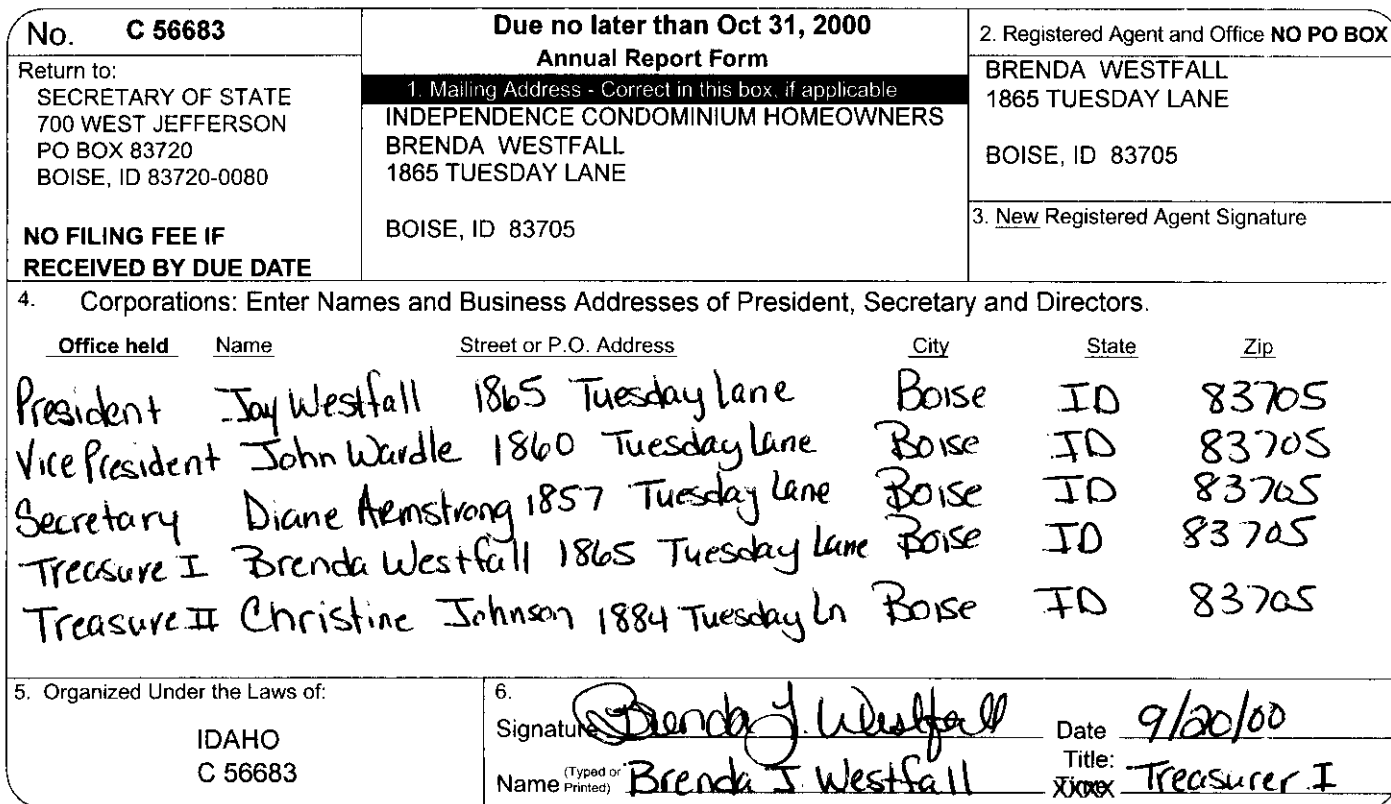 No. C 56683
Return to:
SECRETARY OF STATE
700 WEST JEFFERSON
PO BOX 83720
BOISE, ID 83720-0080
NO FILING FEE IF
RECEIVED BY DUE DATE
Due no later than Oct 31, 2000
Annual Report Form
1. Mailing Address - Correct in this box, if applicable
INDEPENDENCE CONDOMINIUM HOMEOWNERS
BRENDA WESTFALL
1865 TUESDAY LANE
BOISE, ID 83705
2. Registered Agent and Office NO PO BOX
BRENDA WESTFALL
1865 TUESDAY LANE
BOISE, ID 83705
3. New Registered Agent Signature
4. Corporations: Enter Names and Business Addresses of President, Secretary and Directors.
Office held Name Street or P.O. Address City State Zip
President Jay Westfall 1865 Tuesday Lane Boise ID 83705
Vice President John Wardle 1860 Tuesday Lane Boise ID 83705
Secretary Diane Armstrong 1857 Tuesday Lane Boise ID 83705
Treasure I Brenda Westfall 1865 Tuesday Lane Boise ID 83705
Treasure II Christine Johnson 1884 Tuesday Ln Boise ID 83705
5. Organized Under the Laws of:
IDAHO
C 56683
6.
Signature Brenda J. Westfall Date 9/20/00
Name (Typed or Printed) Brenda J. Westfall Title: Treasurer I